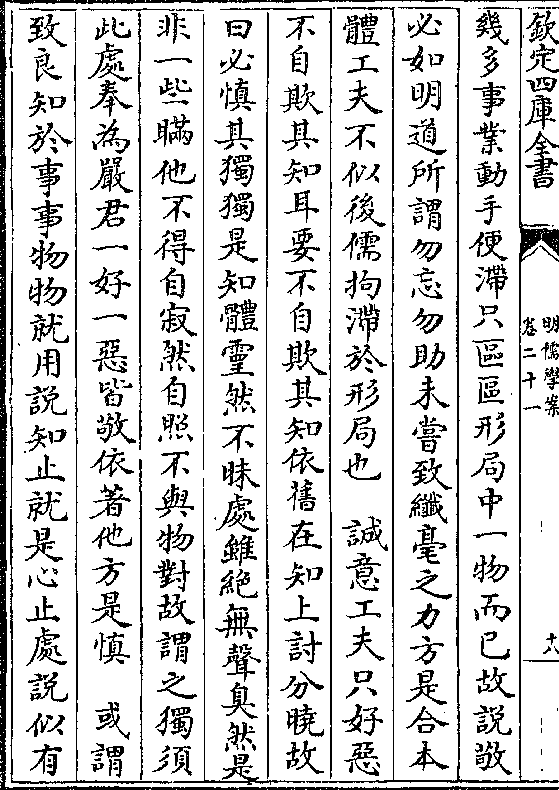 欽定四庫全書
明儒學案
卷二十一
十八
幾多事業動手便滯只區區形局中一物而已故説敬
必如明道所謂勿忘勿助未嘗致纖毫之力方是合本
體工夫不似後儒拘滯於形局也　誠意工夫只好惡
不自欺其知耳要不自欺其知依舊在知上討分曉故
曰必慎其獨獨是知體靈然不昧處雖絶無聲臭然是
非一些瞞他不得自寂然自照不與物對故謂之獨須
此處奉為嚴君一好一惡皆敬依著他方是慎　或謂
致良知於事事物物就用説知止就是心止處説似有